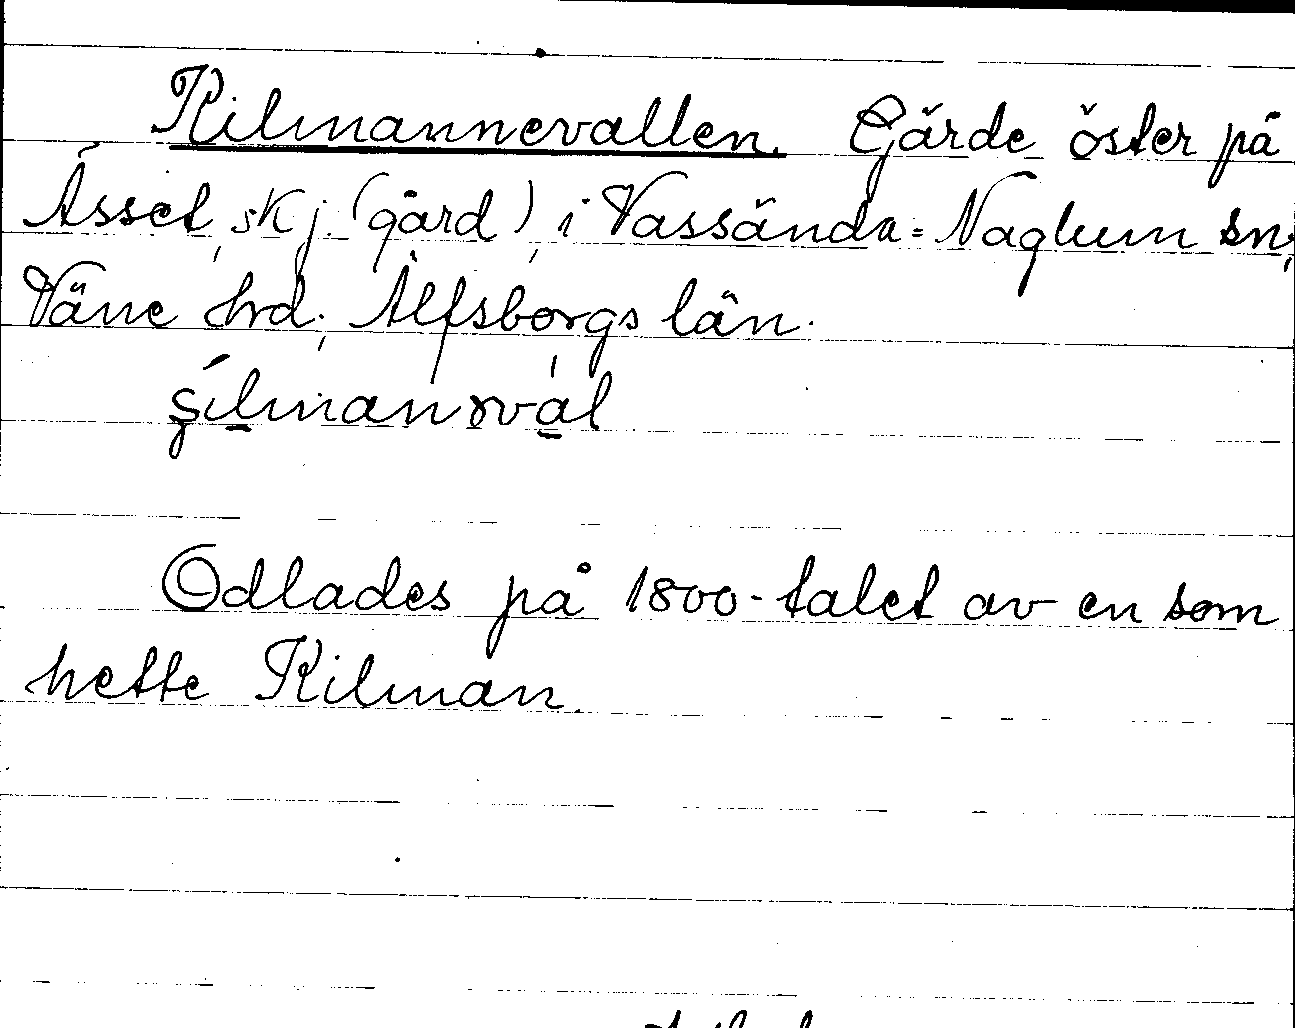 Kilmannevallen. Gärde öster på
Åsset, skj. (gård), i Vassända-Naglum sn,
Väne hrd, Älfsborgs län.
Odlades på 1800-talet av en som
hette Kilman.